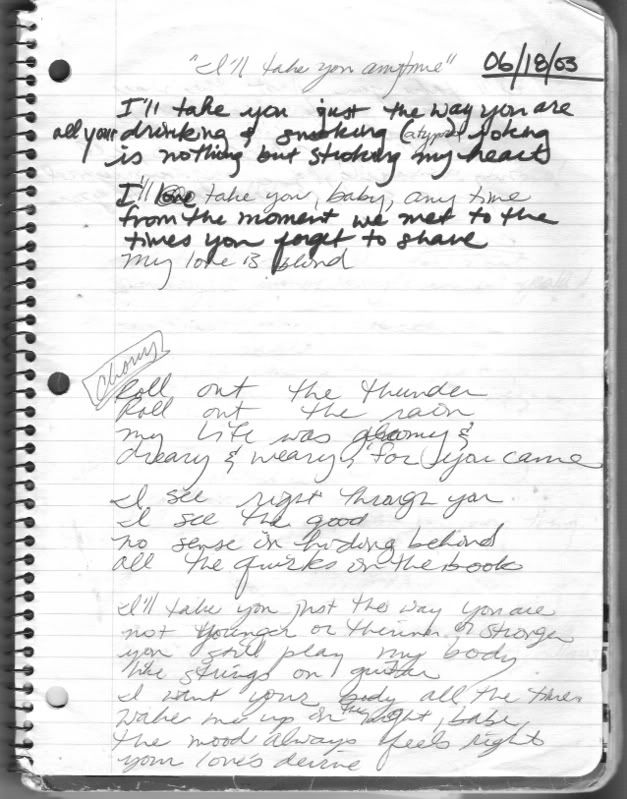 "I'll take you anytime"
06/18/03
I'll take you just the way you are
all your drinking & smoking (atypical) joking
is nothing but stroking my heart
I'll take you, baby, any time
from the moment we met to the
times you forget to shave
My love is blind
Chorus
Roll out the thunder
Roll out the rain
my life was gloomy &
dreary & weary, 'for you came
I see right through you
I see the good
no sense in hiding behind
all the quirks in the book
I'll take you just the way you are
not younger or thinner or stronger
you still play my body
like strings on guitar
I want your body all the time
Wake me up in the night, babe,
the mood always feels right
your love's devine